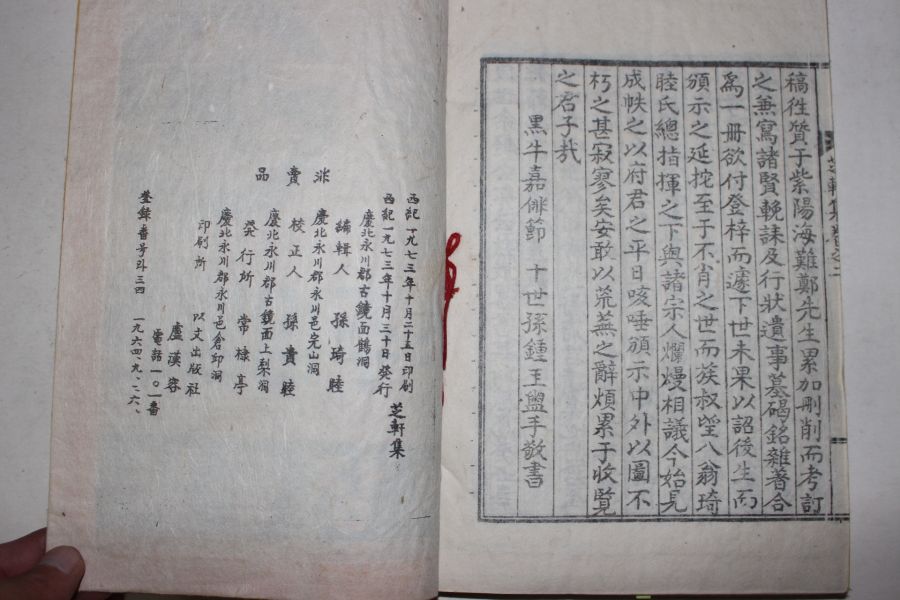 稿徃質于紫陽海難鄭先生累加刪削而考訂
之兼寫諸賢輓誄及行狀遺事墓碣銘雜著合
爲一册欲付登梓而遽下世未果以詔後生而
頒示之延拕至于不肖之世而族叔壆八翁琦
睦氏總指揮之下與諸宗人爛熳相議今始見
成帙之以府君之平日咳唾頒示中外以圖不
朽之甚寂寥矣安敢以荒蕪之辭煩累于收覽
之君子哉
黑牛嘉俳節 十世孫鍾王盥手敬書
芝軒集
西紀一九七三年十月二十五日印刷
西紀一九七三年十月三十日發行
非賣品
慶北永川郡古鏡面鶴洞
編輯人 孫琦睦
慶北永川郡永川邑完山洞
校正人 孫貴睦
慶北永川郡古鏡面上梨洞
發行所 常棣亭
慶北永川郡永川邑倉印洞
印刷所 以文出版社
盧漢容
電話一〇一番
登錄番号라三四 一九六四、九、二六、